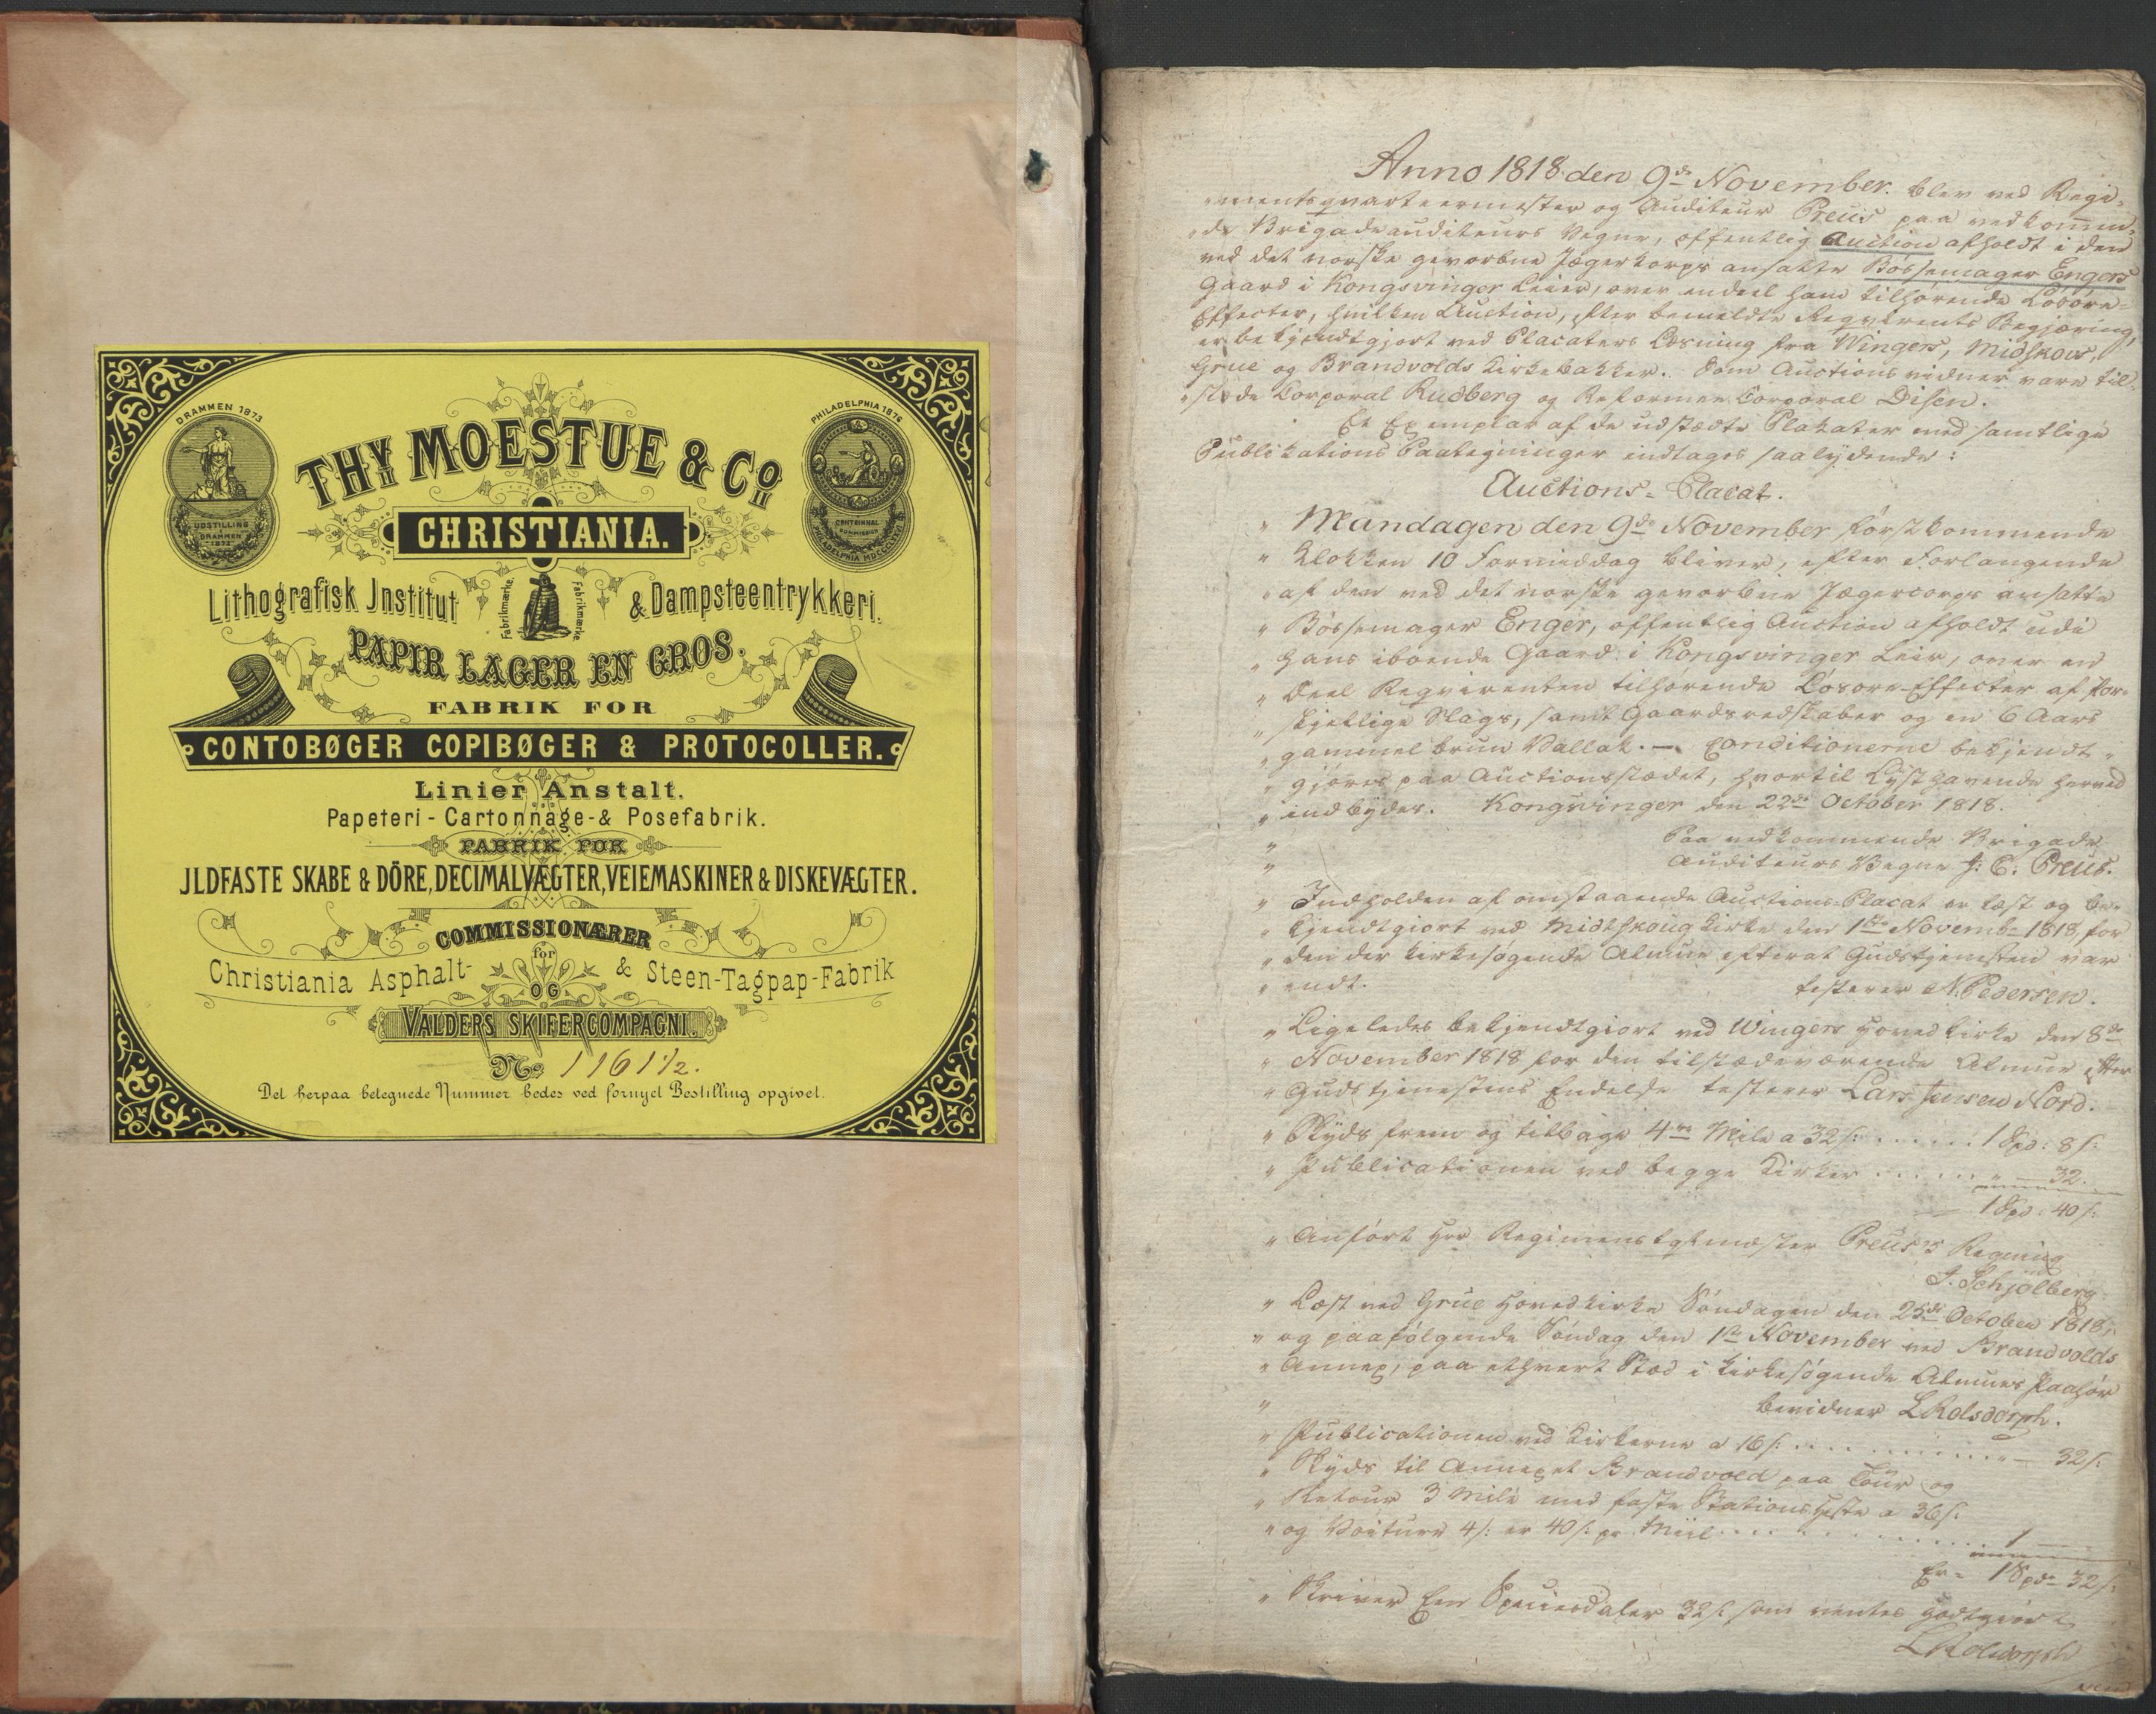 DRAMMEN 1873
PHILADELPHIA 1876
UDSTILLING
DRAMMEN
1873
CENTENNIAL
COMMISSION
PHILADELPHIA MDCCCLXXVI
THS MOESTUE & CO
CHRISTIANIA.
Lithografisk Jnstitut & Dampsteentrykkeri.
Fabrikmærke.
Fabrikmærke
PAPIR LAGER EN GROS.
FABRIK FOR
CONTOBØGER COPIBØGER & PROTOCOLLER.
Linier Anstalt.
Papeteri-Cartonnage-& Posefabrik.
FABRIK FOR
JLDFASTE SKABE & DÖRE, DECIMALVÆGTER, VEIEMASKINER & DISKEVÆGTER.
COMMISSIONÆRER
for
Christiania Asphalt- & Steen-Tagpap-Fabrik
OG
VALDERS SKIFERCOMPAGNI.
No 1161 1/2.
Det herpaa betegnede Nummer bedes ved fornyet Bestilling opgivet.
Anno 1818 den 9de November. blev ved Regi-
mentsqvarteermester og Auditeur Preus paa vedkommen-
de Brigadeauditeurs Vegne, offentlig Auction afholdt i den
ved det norske gevorbne Jægerkorps ansatte Bössemager Engers
Gaard i Kongsvinger Leier, over endeel ham tilhørende Lösöre-
Effecter, hvilken Auction, efter bemeldte Reqvirents Begjæring,
er bekjendtgjort ved Placaters Læsning fra Wingers, Midskovs,
Grue og Brandvolds Kirkebakker. Som Auctionsvidner vare til-
stede Corporal Rudberg og Reformeer Corporal Disen.
Et Exemplar af de udstædte Plakater med samtlige
Publikations Paategninger indtages saalydende:
Auctions-Placat.
" Mandagen den 9de November förstkommende
" Klokken 10 Formiddag bliver, efter Forlangende
" af den ved det norske gevorbne Jægercorps ansatte
" Bössemager Enger, offentlig Auction afholdt udi
" hans iboende Gaard i Kongsvinger Leir, over en
" Deel Reqvirenten tilhörende Lösöre-Effecter af for-
" skjellige Slags, samt Gaardsredskaber og en 6 Aars
" gammel brun Vallak. — Conditionerne bekjendt-
" gjöres paa Auctionsstædet, hvortil Lysthavende herved
" indbydes. Kongsvinger den 22de October 1818.
" Paa vedkommende Brigade
" Auditeurs Vegne J: C. Preus.
" Indholden af omstaaende Auctions-Placat er læst og be-
" kjendtgiort ved Midtskoug Kirke den 1ste Novembr 1818 for
" den der kirkesögende Almue efterat Gudstjenesten var
" endt. testerer N. Pedersen.
" Ligeledes bekjendtgiort ved Wingers Hoved Kirke den 8de
" November 1818 for den tilstædeværende Almue efter
" Gudstjenestens Endelse testerer Lars Jensen Nord.
" Skyds frem og tilbage 4re Mile a 32 s: ...... 1 Spd: 8 s:
" Publicationen ved begge Kirker ...... " — 32.
1 Spd: 40 s:
" Anfört Hrr Regimentsqtmester Preus's Regning
J. Schjölberg
" Læst ved Grue Hovedkirke Söndagen den 25de October 1818,
" og paafölgende Söndag den 1ste November ved Brandvolds
" Annex, paa ethvert Stæd i kirkesögende Almues Paahör
" bevidner L Rolsdorph.
" Publicationen ved Kirkerne a 16 s: ...... " — 32 s:
" Skyds til Annexet Brandvold paa Tour og
" Retour 3 Mile med faste Stations Heste a 36 s:
" og Voiture 4 s: er 40 s: pr Miil ...... 1 —
Er = 1 Spd 32 s:
" Skriver Een Speciesdaler 32 s: som ventes godtgiort
L Rolsdorph